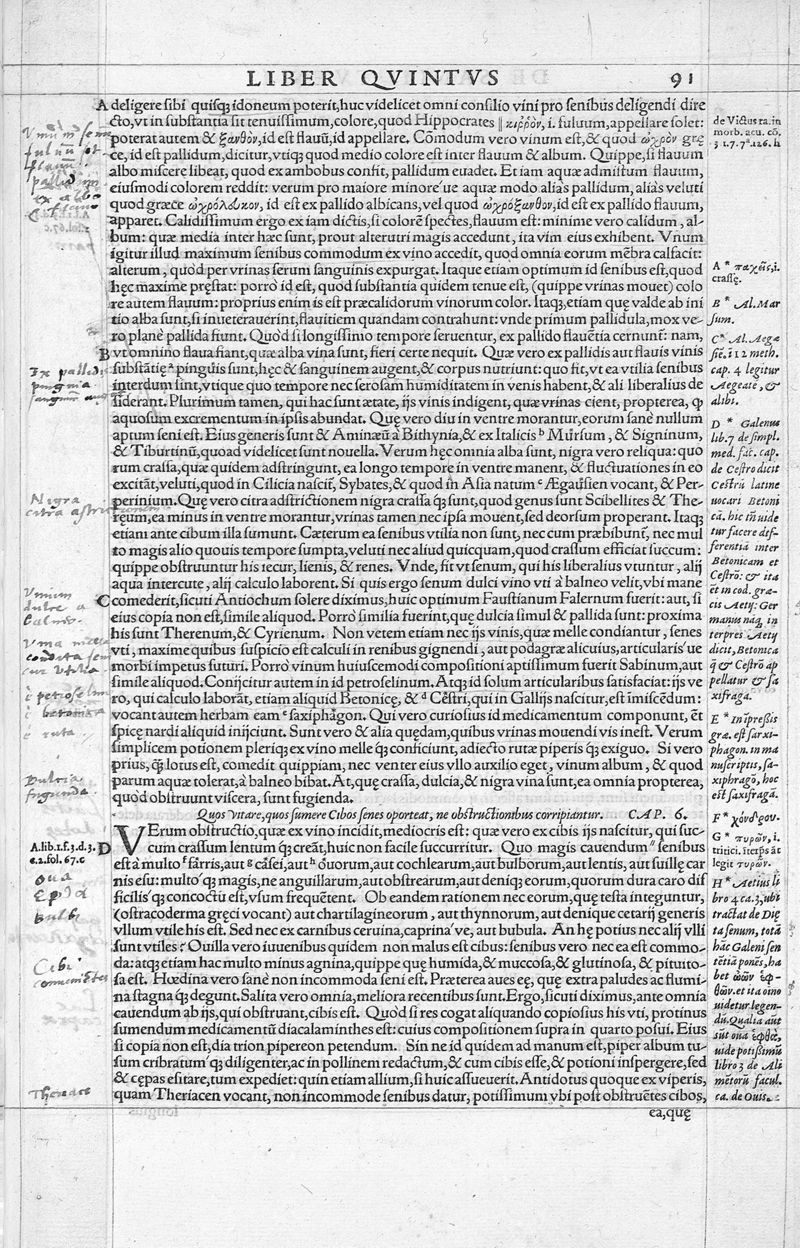 LIBER QVINTVS 91
A deligere sibi quisq; idoneum poterit, huc videlicet omni consilio vini pro senibus deligendi dire
cto, vt in substantia sit tenuissimum, colore, quod Hippocrates || κιρρὸν, i. fuluum, appellare solet:
poterat autem & ξανθὸν, id est flauũ, id appellare. Cõmodum vero vinum est, & quod ὠχρὸν grę
ce, id est pallidum, dicitur, vtiq; quod medio colore est inter flauum & album. Quippe, si flauum
albo miscere libeat, quod ex ambobus confit, pallidum euadet. Et iam aquæ admistum flauum,
eiusmodi colorem reddit: verum pro maiore minore'ue aquæ modo alias pallidum, alias veluti
quod græce ὠχρόλευκον, id est ex pallido albicans, vel quod ὠχρόξανθον, id est ex pallido flauum,
apparet. Calidissimum ergo ex iam dictis, si colorẽ spectes, flauum est: minime vero calidum, al-
bum: quæ media inter hæc sunt, prout alterutri magis accedunt, ita vim eius exhibent. Vnum
igitur illud maximum senibus commodum ex vino accedit, quod omnia eorum mẽbra calfacit:
alterum, quòd per vrinas serum sanguinis expurgat. Itaque etiam optimum id senibus est, quod
hęc maxime pręstat: porrò id est, quod substantia quidem tenue est, (quippe vrinas mouet) colo
re autem flauum: proprius enim is est præcalidorum vinorum color. Itaq;, etiam quę valde ab ini
tio alba sunt, si inueterauerint, flauitiem quandam contrahunt: vnde primum pallidula, mox ve-
ro planè pallida fiunt. Quòd si longissimo tempore seruentur, ex pallido flauẽtia cernunt: nam,
B vt omnino flaua fiant, quæ alba vina sunt, fieri certe nequit. Quæ vero ex pallidis aut flauis vinis
substãtię ª pinguis sunt, hęc & sanguinem augent, & corpus nutriunt: quo fit, vt ea vtilia senibus
interdum sint, vtique quo tempore nec serosam humiditatem in venis habent, & ali liberalius de
siderant. Plurimum tamen, qui hac sunt ætate, ijs vinis indigent, quæ vrinas cient, propterea, q̃
aquosum excrementum in ipsis abundat. Quę vero diu in ventre morantur, eorum sanè nullum
aptum seni est. Eius generis sunt & Aminæũ à Bithynia, & ex Italicis ᵇ Mursum, & Signinum,
& Tiburtinũ, quoad videlicet sunt nouella. Verum hęc omnia alba sunt, nigra vero reliqua: quo
rum crassa, quæ quidem adstringunt, ea longo tempore in ventre manent, & fluctuationes in eo
excitãt, veluti, quod in Cilicia nascit̃, Sybates, & quod in Asia natum ᶜ Ægausien vocant, & Per-
perinium. Quę vero citra adstrictionem nigra crassa q̃; sunt, quod genus sunt Scibellites & The-
ręum, ea minus in ventre morantur, vrinas tamen nec ipsa mouent, sed deorsum properant. Itaq;
etiam ante cibum illa sumunt. Cæterum ea senibus vtilia non sunt, nec cum præbibunt̃, nec mul
to magis alio quouis tempore sumpta, veluti nec aliud quicquam, quod crassum efficiat succum:
quippe obstruuntur his iecur, lienis, & renes. Vnde, fit vt senum, qui his liberalius vtuntur, alij
aqua intercute, alij calculo laborent. Si quis ergo senum dulci vino vti à balneo velit, vbi mane
C comederit, sicuti Antiochum solere diximus, huic optimum Faustianum Falernum fuerit: aut, si
eius copia non est, simile aliquod. Porrò similia fuerint, quę dulcia simul & pallida sunt: proxima
his sunt Therenum, & Cyrienum. Non vetem etiam nec ijs vinis, quæ melle condiantur, senes
vti, maxime quibus suspicio est calculi in renibus gignendi, aut podagræ alicuius, articularis'ue
morbi impetus futuri. Porrò vinum huiuscemodi compositioni aptissimum fuerit Sabinum, aut
simile aliquod. Conijcitur autem in id petroselinum. Atq; id solum articularibus satisfaciat: ijs ve
ro, qui calculo laborãt, etiam aliquid Betonicę, & ᵈ Cestri, qui in Gallijs nascitur, est ĩmiscẽdum:
vocant autem herbam eam ᵉ saxiphagon. Qui vero curiosius id medicamentum componunt, ẽt
spicę nardi aliquid inijciunt. Sunt vero & alia quędam, quibus vrinas mouendi vis inest. Verum
simplicem potionem pleriq; ex vino melle q̃; conficiunt, adiecto rutæ piperis q̃; exiguo. Si vero
prius, q̃; lotus est, comedit quippiam, nec venter eius vllo auxilio eget, vinum album, & quod
parum aquæ tolerat, à balneo bibat. At, quę crassa, dulcia, & nigra vina sunt, ea omnia propterea,
quod obstruunt viscera, sunt fugienda.
Quos vitare, quos sumere Cibos senes oporteat, ne obstructionibus corripiantur. CAP. 6.
D VErum obstructio, quæ ex vino incidit, mediocris est: quæ vero ex cibis ijs nascitur, qui suc-
cum crassum lentum q̃; creãt, huic non facile succurritur. Quo magis cauendum senibus
est à multo ᶠ farris, aut ᵍ casei, aut ʰ ouorum, aut cochlearum, aut bulborum, aut lentis, aut suillę car
nis esu: multo q̃; magis, ne anguillarum, aut obstrearum, aut deniq; eorum, quorum dura caro dif
ficilis q̃; concoctu est, vsum frequẽtent. Ob eandem rationem nec eorum, quę testa integuntur,
(ostracoderma gręci vocant) aut chartilagineorum, aut thynnorum, aut denique cetarij generis
vllum vtile his est. Sed nec ex carnibus ceruina, caprina've, aut bubula. An hę potius nec alij vlli
sunt vtiles? Ouilla vero iuuenibus quidem non malus est cibus: senibus vero nec ea est commo-
da: atq; etiam hac multo minus agnina, quippe quę humida, & muccosa, & glutinosa, & pituito-
sa est. Hœdina vero sanè non incommoda seni est. Præterea aues eę, quę extra paludes ac flumi
na stagna q̃; degunt. Salita vero omnia, meliora recentibus sunt. Ergo, sicuti diximus, ante omnia
cauendum ab ijs, qui obstruant, cibis est. Quòd si res cogat aliquando copiosius his vti, protinus
sumendum medicamentũ diacalaminthes est: cuius compositionem supra in quarto posui. Eius
si copia non est, dia trion pipereon petendum. Sin ne id quidem ad manum est, piper album tu-
sum cribratum q̃; diligenter, ac in pollinem redactum, & cum cibis esse, & potioni inspergere, sed
& cępas esitare, tum expediet: quin etiam allium, si huic assueuerit. Antidotus quoque ex viperis,
quam Theriacen vocant, non incommode senibus datur, potissimum vbi post obstruẽtes cibos,
ea, quę
de Victus ra. in
morb. acu. cõ.
3 1.7.7ª.126.h
A * παχεῖς, i.
crassę.
B * Al. Mar
sum.
C * Al. Aega
siẽ, ĩ 12 meth.
cap. 4 legitur
Aegeate, &
alibi.
D * Galenus
lib. 7 de simpl.
med. fac. cap.
de Cestro dicit
Cestrũ latine
uocari Betoni
cã. hic tñ uide
tur facere dif-
ferentiã inter
Betonicam et
Cestrõ: & ita
ẽt in cod. græ-
cis Aetij: Ger
manus náq; in
terpres Aetij
dicit, Betonica
q̃ & Cestrõ ap
pellatur & sa
xifraga.
E * In ĩpreßis
græ. est sarxi-
phagon. in ma
nuscriptis, sa-
xiphragõ, hoc
est saxifragã.
F * χόνδρου.
G * πυρῶν, i.
tritici. Iterp̃s ãt
legit τυρῶν.
H * Aetius li
bro 4 ca. 3, ubi
tractat de Dię
ta senum, totã
hãc Galeni sen
tẽtiã ponẽs, ha
bet ὠῶν ἑφ-
θῶν. et ita oĩno
uidetur legen-
dũ. Qualia aũt
sũt oua ἑφθὰ,
uide potißimũ
libro 3 de Ali
mẽtorũ facul.
ca. de Ouis.
Nigra
A.lib.t.f.3.d.3.
e.2.fol.67.c
oua
Bulbi
Cibi